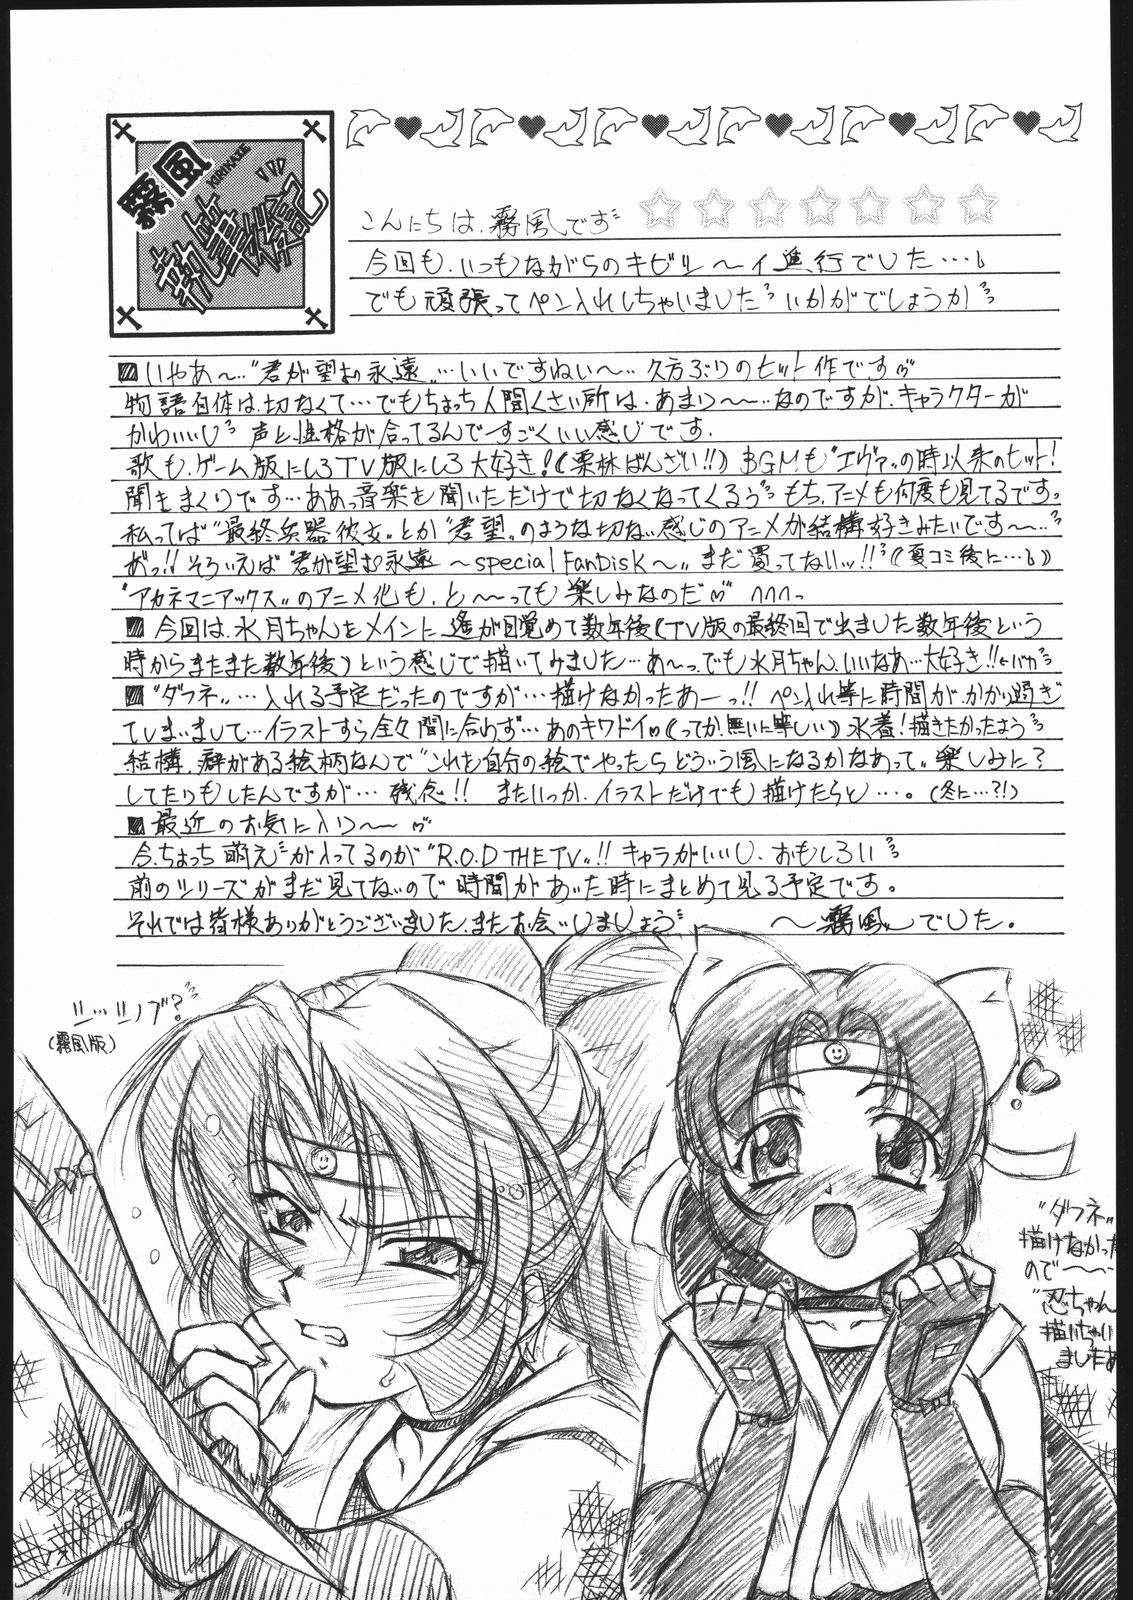 霧風
KIRIKAZE
執筆後記
こんにちは、霧風です
今回も、いつもながらのキビシ～イ進行でした…
でも頑張ってペン入れしちゃいました いかがでしょうか
■いやあ～…“君が望む永遠”…いいですねぃ～…久方ぶりのヒット作です
物語自体は、切なくて…でもちょっち人間くさい所は、あまり～～…なのですが、キャラクターが
かわいいし 声と、性格が合ってるんですごくいい感じです。
歌も、ゲーム版にしろTV版にしろ大好き!(栗林ばんざい!!) BGMも“エヴァ”の時以来のヒット!
聞きまくりです…ああっ音楽を聞いただけで切なくなってくるぅ もち、アニメも何度も見てるです。
私ってば“最終兵器彼女”とか“君望”のような切ない感じのアニメが結構好きみたいです～…
あっ!! そういえば“君が望む永遠 ～special FanDisk～”まだ買ってないッ!! (夏コミ後に…)
“アカネマニアックス”のアニメ化も、と～～っても楽しみなのだ
■今回は、水月ちゃんをメインに遙が目覚めて数年後(TV版の最終回で出ました数年後という
時からまたまた数年後)という感じで描いてみました…あ～っ、でも水月ちゃん、いいなあ…大好き!!←バカ
■“ダフネ”…入れる予定だったのですが…描けなかったあーっ!! ペン入れ等に時間が、かかり過ぎ
てしまいまして…イラストすら全々間に合わず…あのキワドイ(ってか、無いに等しい)水着!描きたかったよう
結構、癖がある絵柄なんで“これを自分の絵でやったらどういう風になるかなあって”楽しみに?
してたりもしたんですが…残念!! またいつか、イラストだけでも描けたらと…。(冬に…?!)
■最近のお気に入り～～
今、ちょっち萌えが入ってるのが“R.O.D THE TV”!! キャラがいいし、おもしろい
前のシリーズがまだ見てないので時間があいた時にまとめて見る予定です。
それでは皆様ありがとうございました、またお会いしましょう ～霧風～でした。
シ…シノブ?
(霧風版)
“ダフネ”
描けなかった
ので～～…
“忍ちゃん
描いちゃい
ましたあ